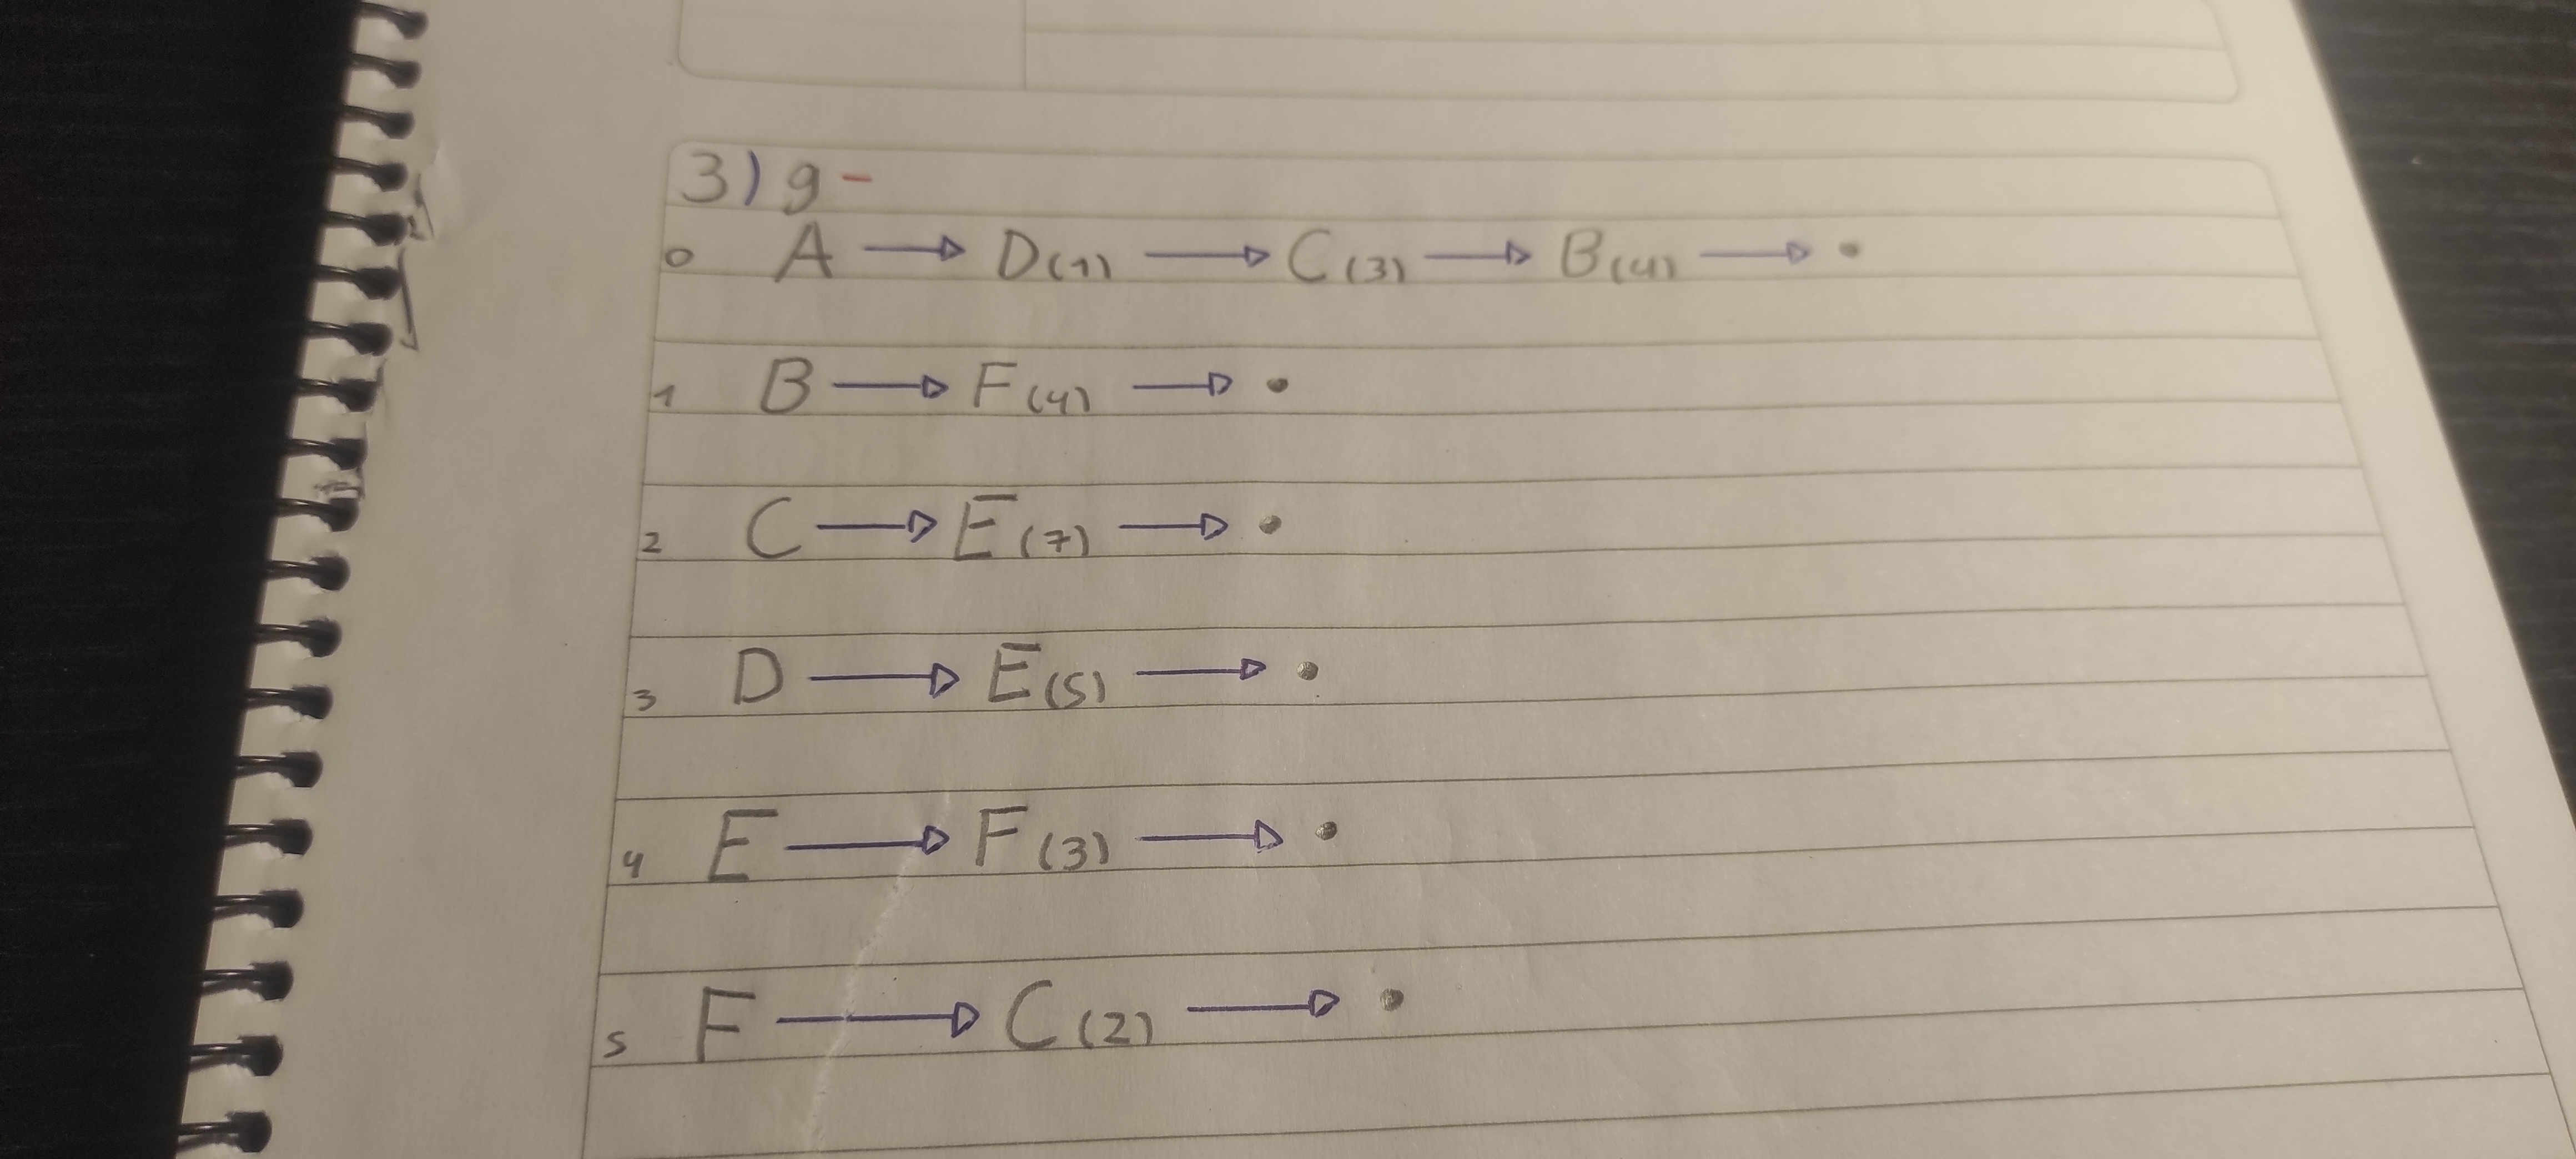 3) g -
0 A → D(1) → C(3) → B(4) → •
1 B → F(4) → •
2 C → E(7) → •
3 D → E(5) → •
4 E → F(3) → •
5 F → C(2) → •